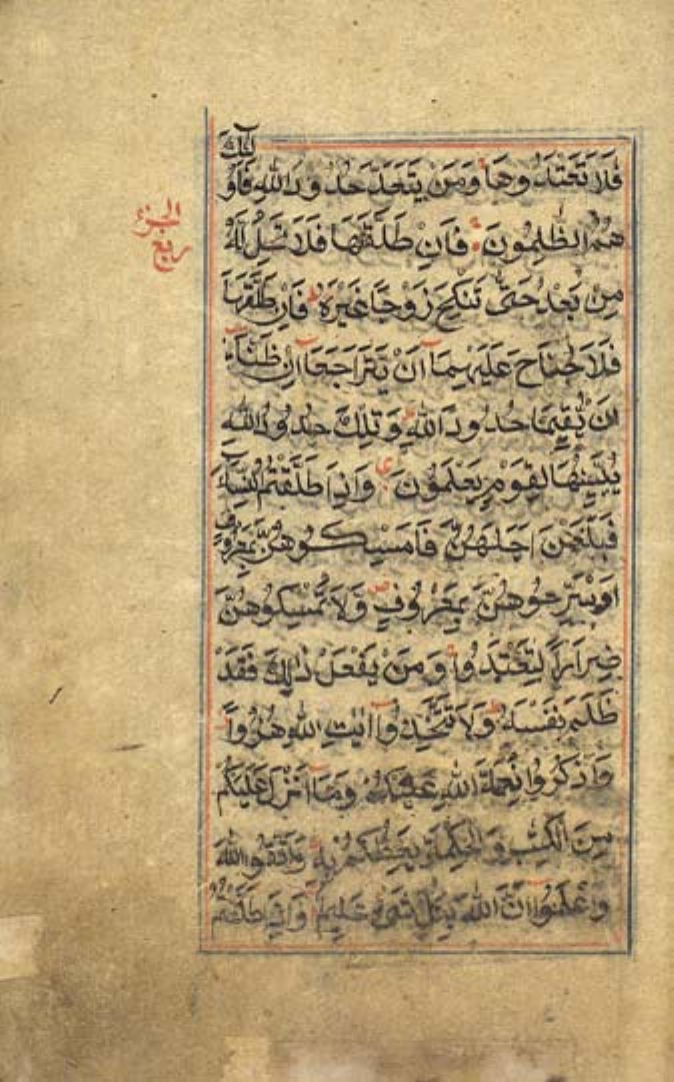 فَلَا تَعْتَدُوهَا وَمَنْ يَتَعَدَّ حُدُودَ اللهِ فَاُولٰٓئِكَ
هُمُ الظّٰلِمُونَ فَاِنْ طَلَّقَهَا فَلَا تَحِلُّ لَهُ
مِنْ بَعْدُ حَتّٰى تَنْكِحَ زَوْجًا غَيْرَهُ ط فَاِنْ طَلَّقَهَا
فَلَا جُنَاحَ عَلَيْهِمَا اَنْ يَتَرَاجَعَا اِنْ ظَنَّا
اَنْ يُقِيمَا حُدُودَ اللهِ ط وَتِلْكَ حُدُودُ اللهِ
يُبَيِّنُهَا لِقَوْمٍ يَعْلَمُونَ وَاِذَا طَلَّقْتُمُ النِّسَآءَ
فَبَلَغْنَ اَجَلَهُنَّ فَاَمْسِكُوهُنَّ بِمَعْرُوفٍ
اَوْ سَرِّحُوهُنَّ بِمَعْرُوفٍ ص وَلَا تُمْسِكُوهُنَّ
ضِرَارًا لِتَعْتَدُوا وَمَنْ يَفْعَلْ ذٰلِكَ فَقَدْ
ظَلَمَ نَفْسَهُ ط وَلَا تَتَّخِذُوا اٰيٰتِ اللهِ هُزُوًا
وَاذْكُرُوا نِعْمَةَ اللهِ عَلَيْكُمْ وَمَا اَنْزَلَ عَلَيْكُمْ
مِنَ الْكِتٰبِ وَالْحِكْمَةِ يَعِظُكُمْ بِهِ ط وَاتَّقُوا اللهَ
وَاعْلَمُوا اَنَّ اللهَ بِكُلِّ شَيْءٍ عَلِيمٌ وَاِذَا طَلَّقْتُمُ
الجزء
ربع